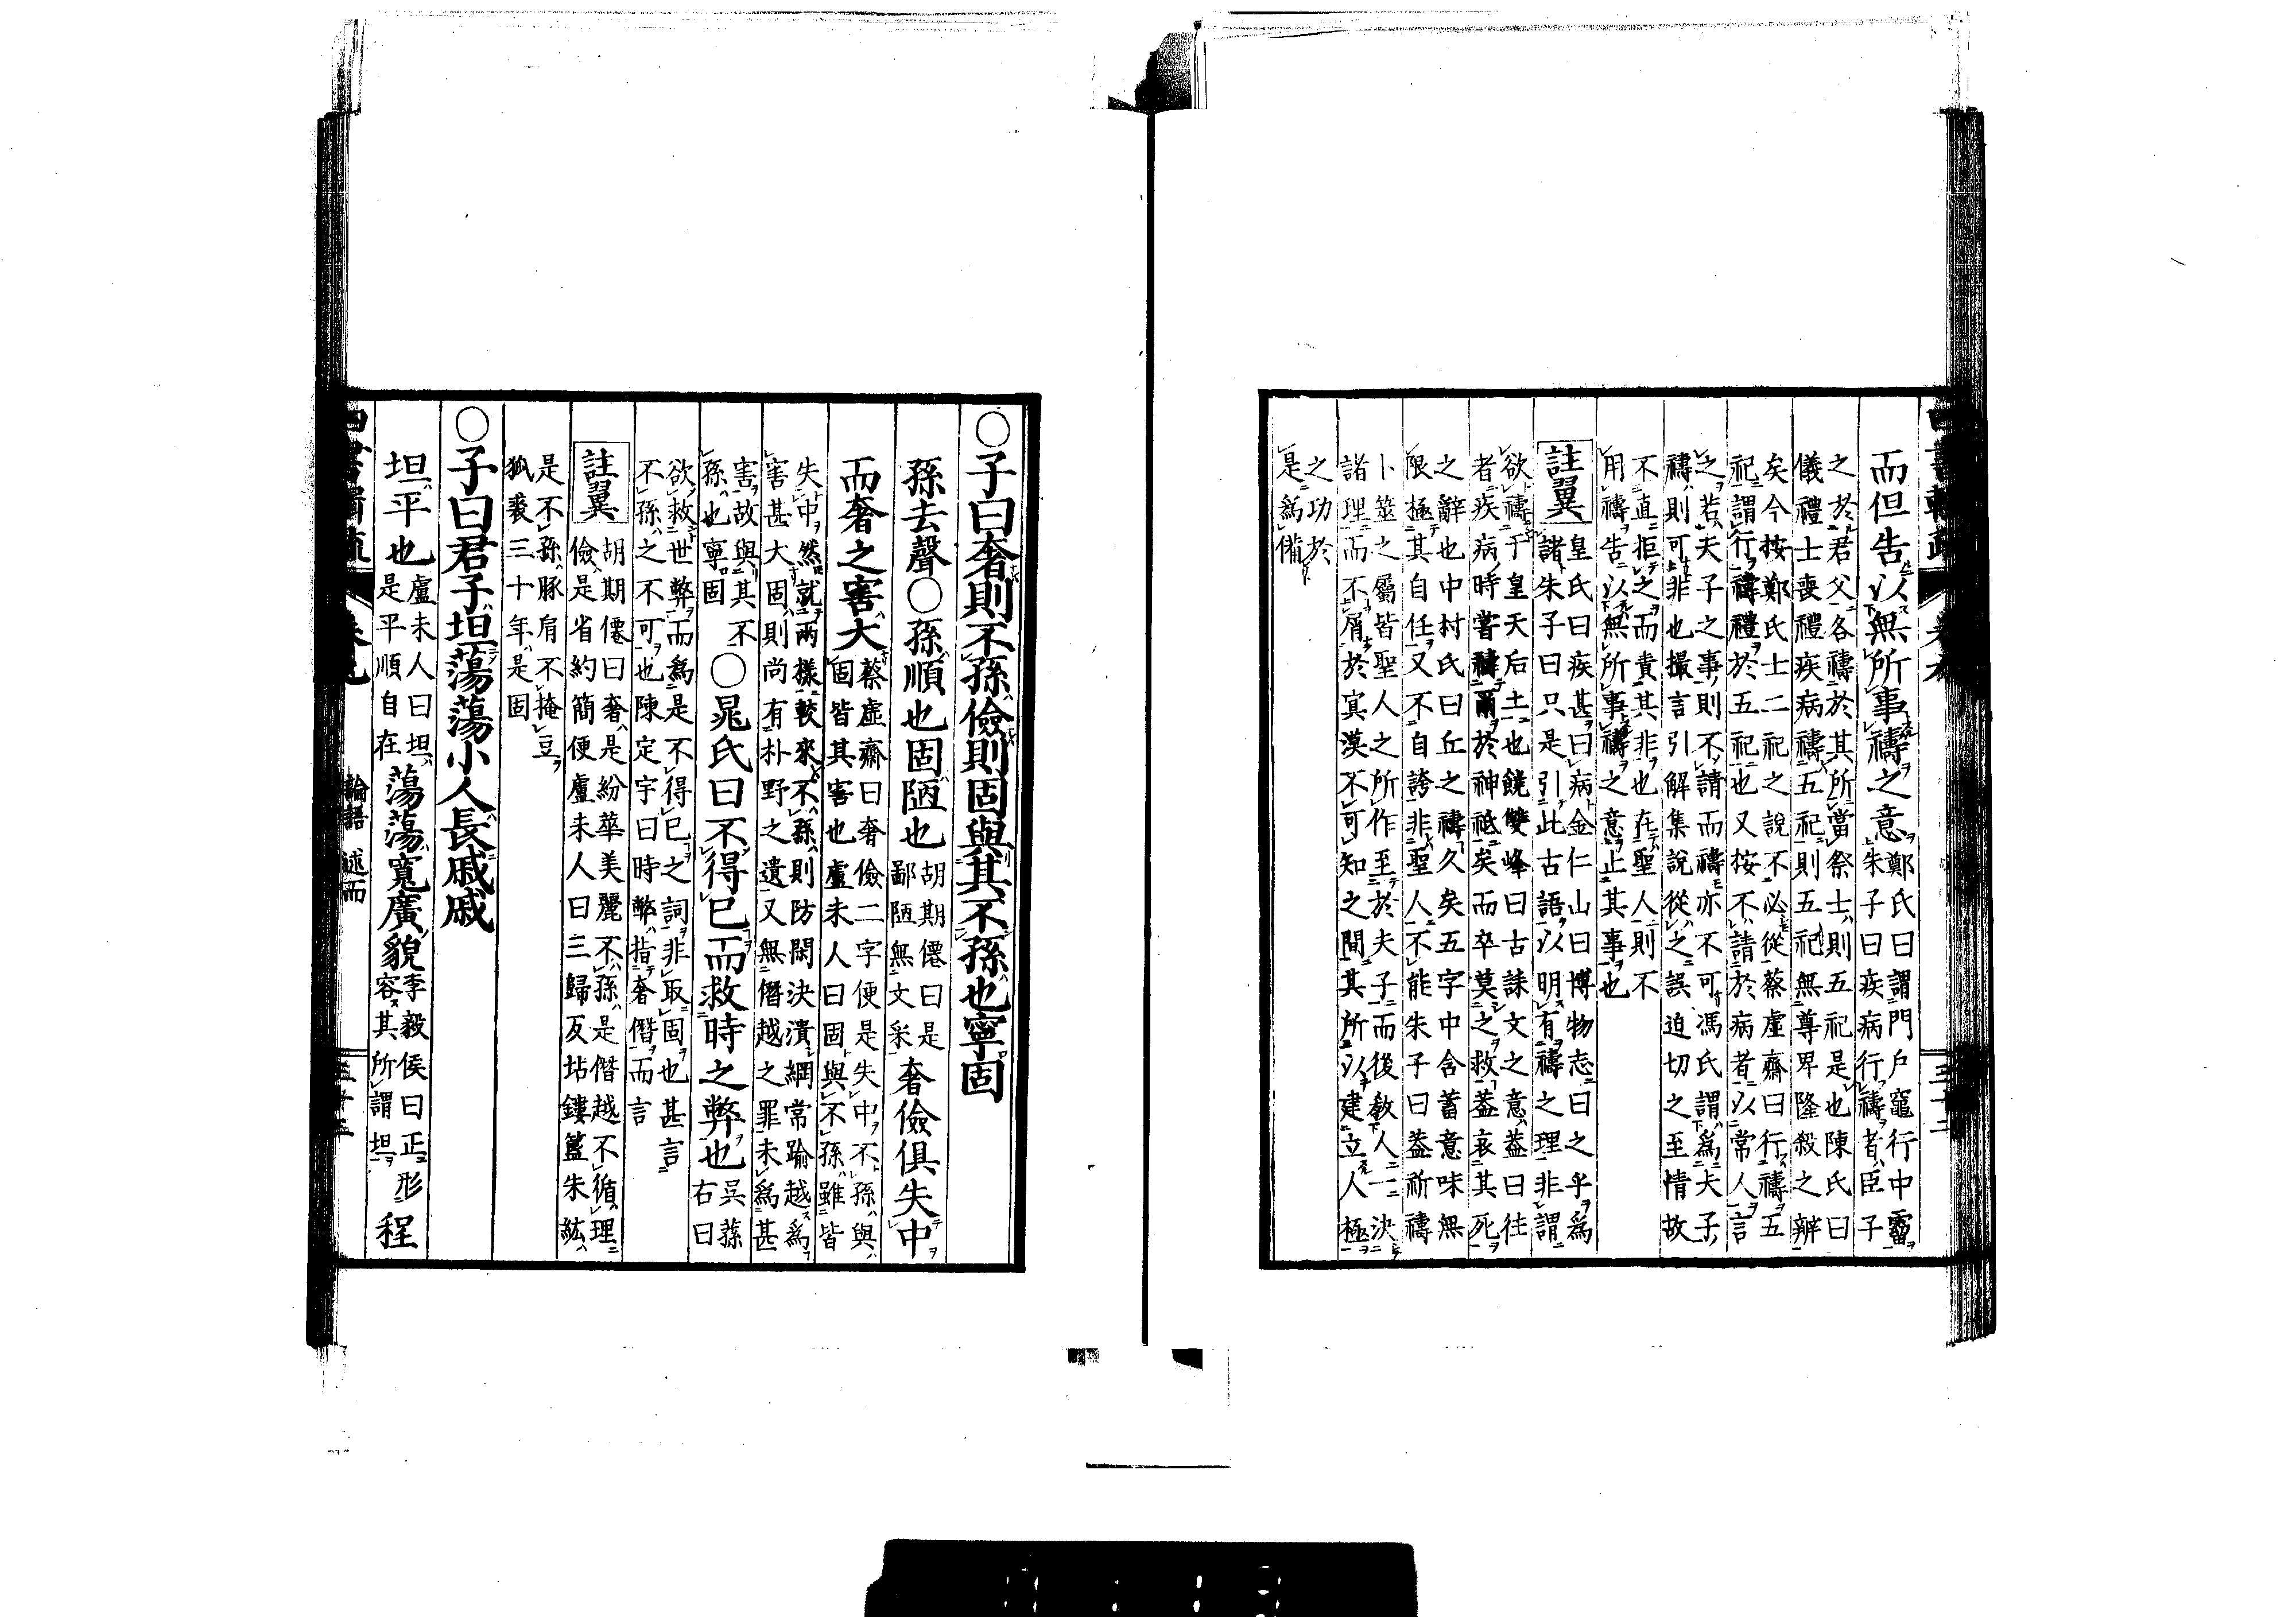 而但告以無所事禱之意鄭氏曰謂門戶竈行中霤
朱子曰疾病行禱者臣子
之於君父各禱於其所當祭士則五祀是也陳氏曰
儀禮士喪禮疾病禱五祀則五祀無尊卑隆殺之辨
矣今按鄭氏士二祀之說不必從蔡虛齋曰行禱五
祀謂行禱禮於五祀也又按不請於病者以常人言
之若夫子之事則不請而禱亦不可馮氏謂爲夫子
禱則可非也撮言引解集說從之誤迫切之至情故
不直拒之而責其非也在聖人則不
用禱告以無所事禱之意止其事也
註翼
皇氏曰疾甚曰病金仁山曰博物志曰之乎爲
諸朱子曰只是引此古語以明有禱之理非謂
欲禱于皇天后土也饒雙峰曰古誄文之意蓋曰往
者疾病時嘗禱爾於神祗矣而卒莫之救蓋哀其死
之辭也中村氏曰丘之禱久矣五字中含蓄意味無
限極其自任又不自誇非聖人不能朱子曰蓋祈禱
卜筮之屬皆聖人之所作至於夫子而後敎人一決
諸理而不屑於冥漠不可知之間其所以建立人極
之功於
是爲備
四書輯疏
論語 述而
○子曰奢則不孫儉則固與其不孫也寧固
孫去聲○孫順也固陋也胡期僊曰是
鄙陋無文采奢儉俱失中
而奢之害大蔡虛齋曰奢儉二字便是失中不孫與
固皆其害也盧未人曰固與不孫雖皆
失中然就兩樣較來不孫則防閑決潰綱常踰越爲
害甚大固則尚有朴野之遺又無僭越之罪未爲甚
害故與其不
孫也寧固○晁氏曰不得已而救時之弊也吳蓀
右曰
欲救世弊而爲是不得已之詞非取固也甚言
不孫之不可也陳定宇曰時弊指奢僭而言
註翼
胡期僊曰奢是紛華美麗不孫是僭越不循理
儉是省約簡便盧未人曰三歸反坫鏤簋朱紘
是不孫豚肩不掩豆
狐裘三十年是固
○子曰君子坦蕩蕩小人長戚戚
坦平也盧未人曰坦
是平順自在蕩蕩寬廣貌李毅侯曰正形
容其所謂坦程